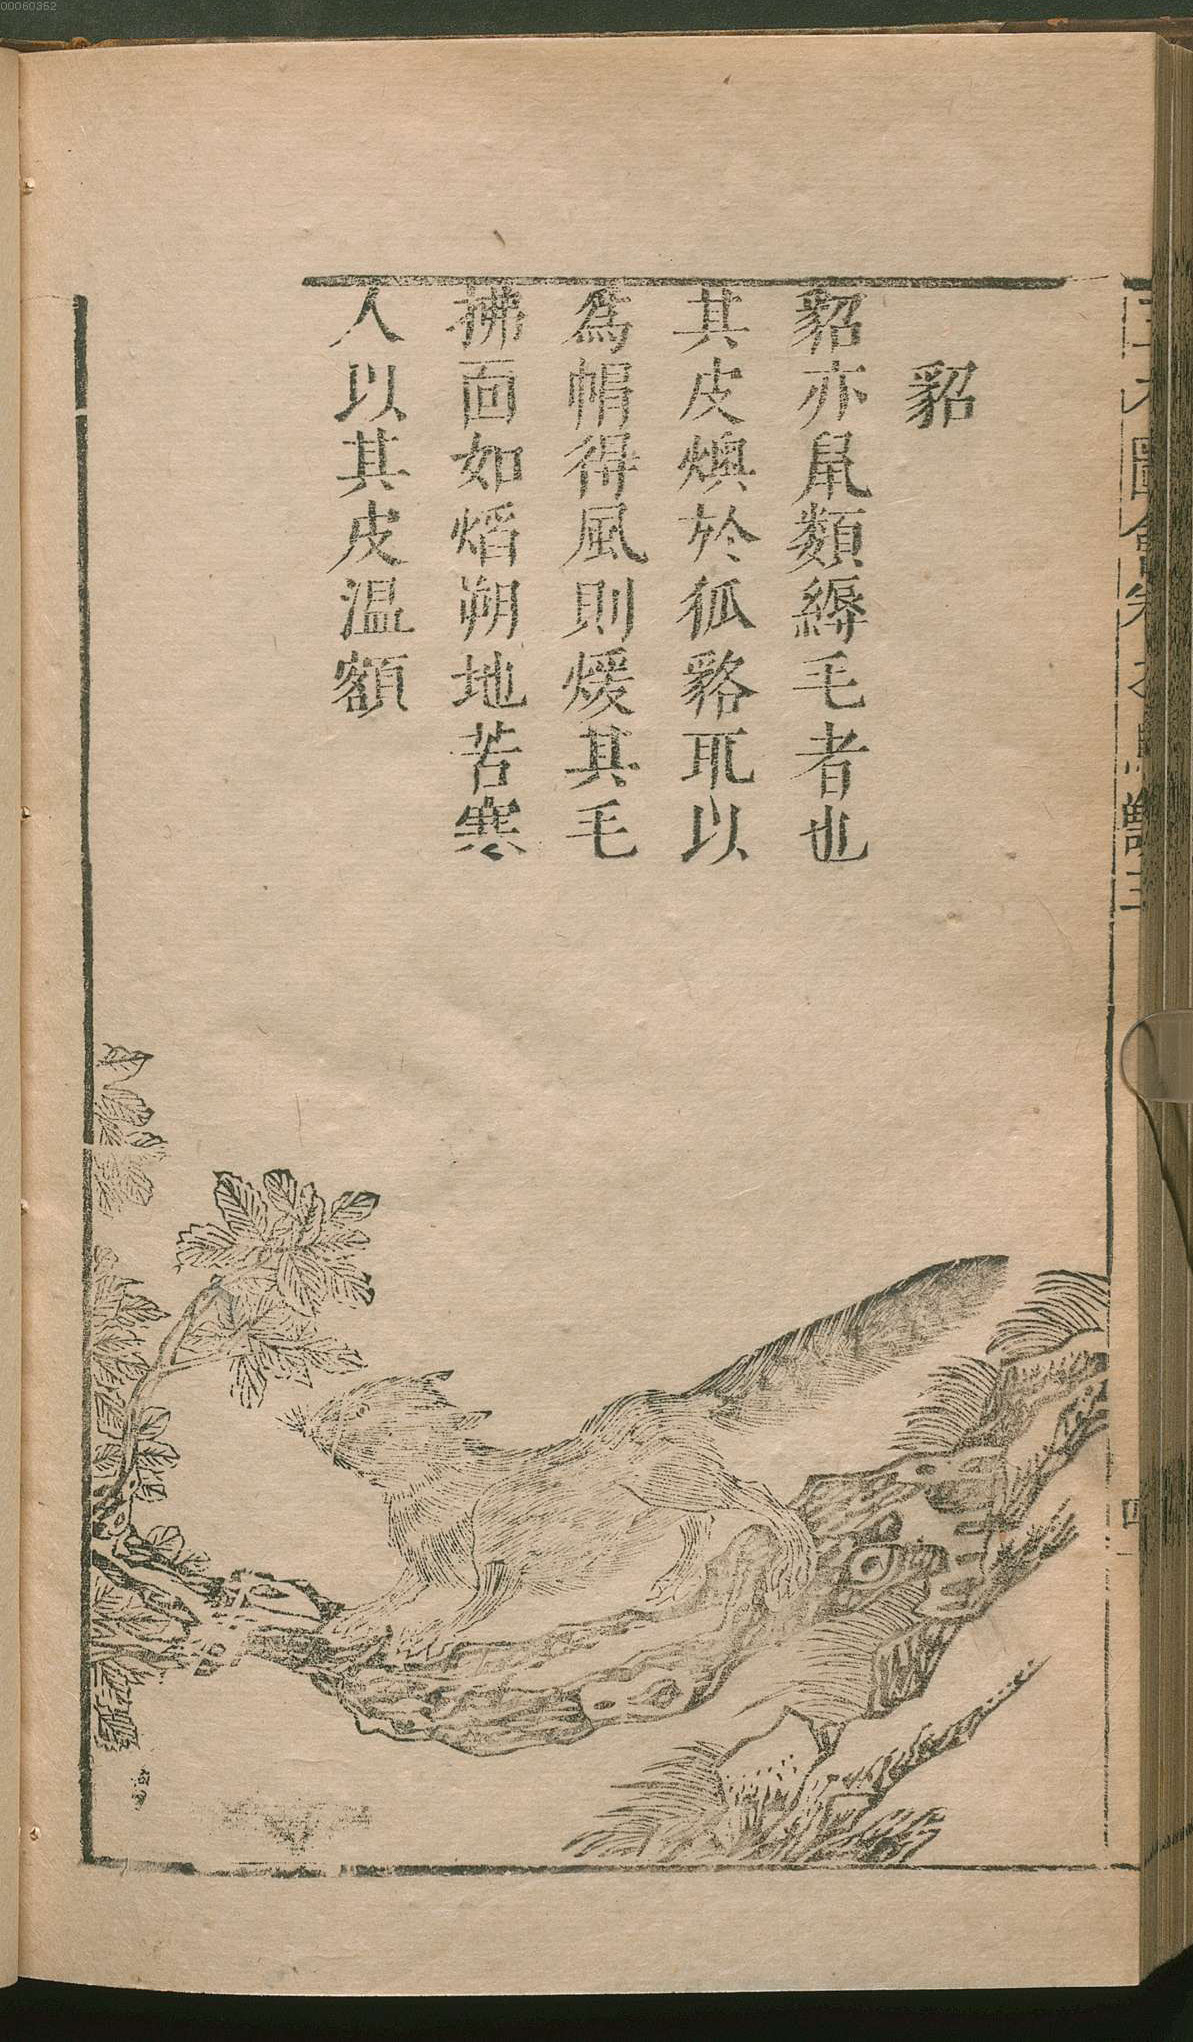 00060352
貂
貂亦鼠類縟毛者也
其皮燠於狐貉耴以
為帽得風則煖其毛
拂面如熖朔地苦寒
人以其皮温額